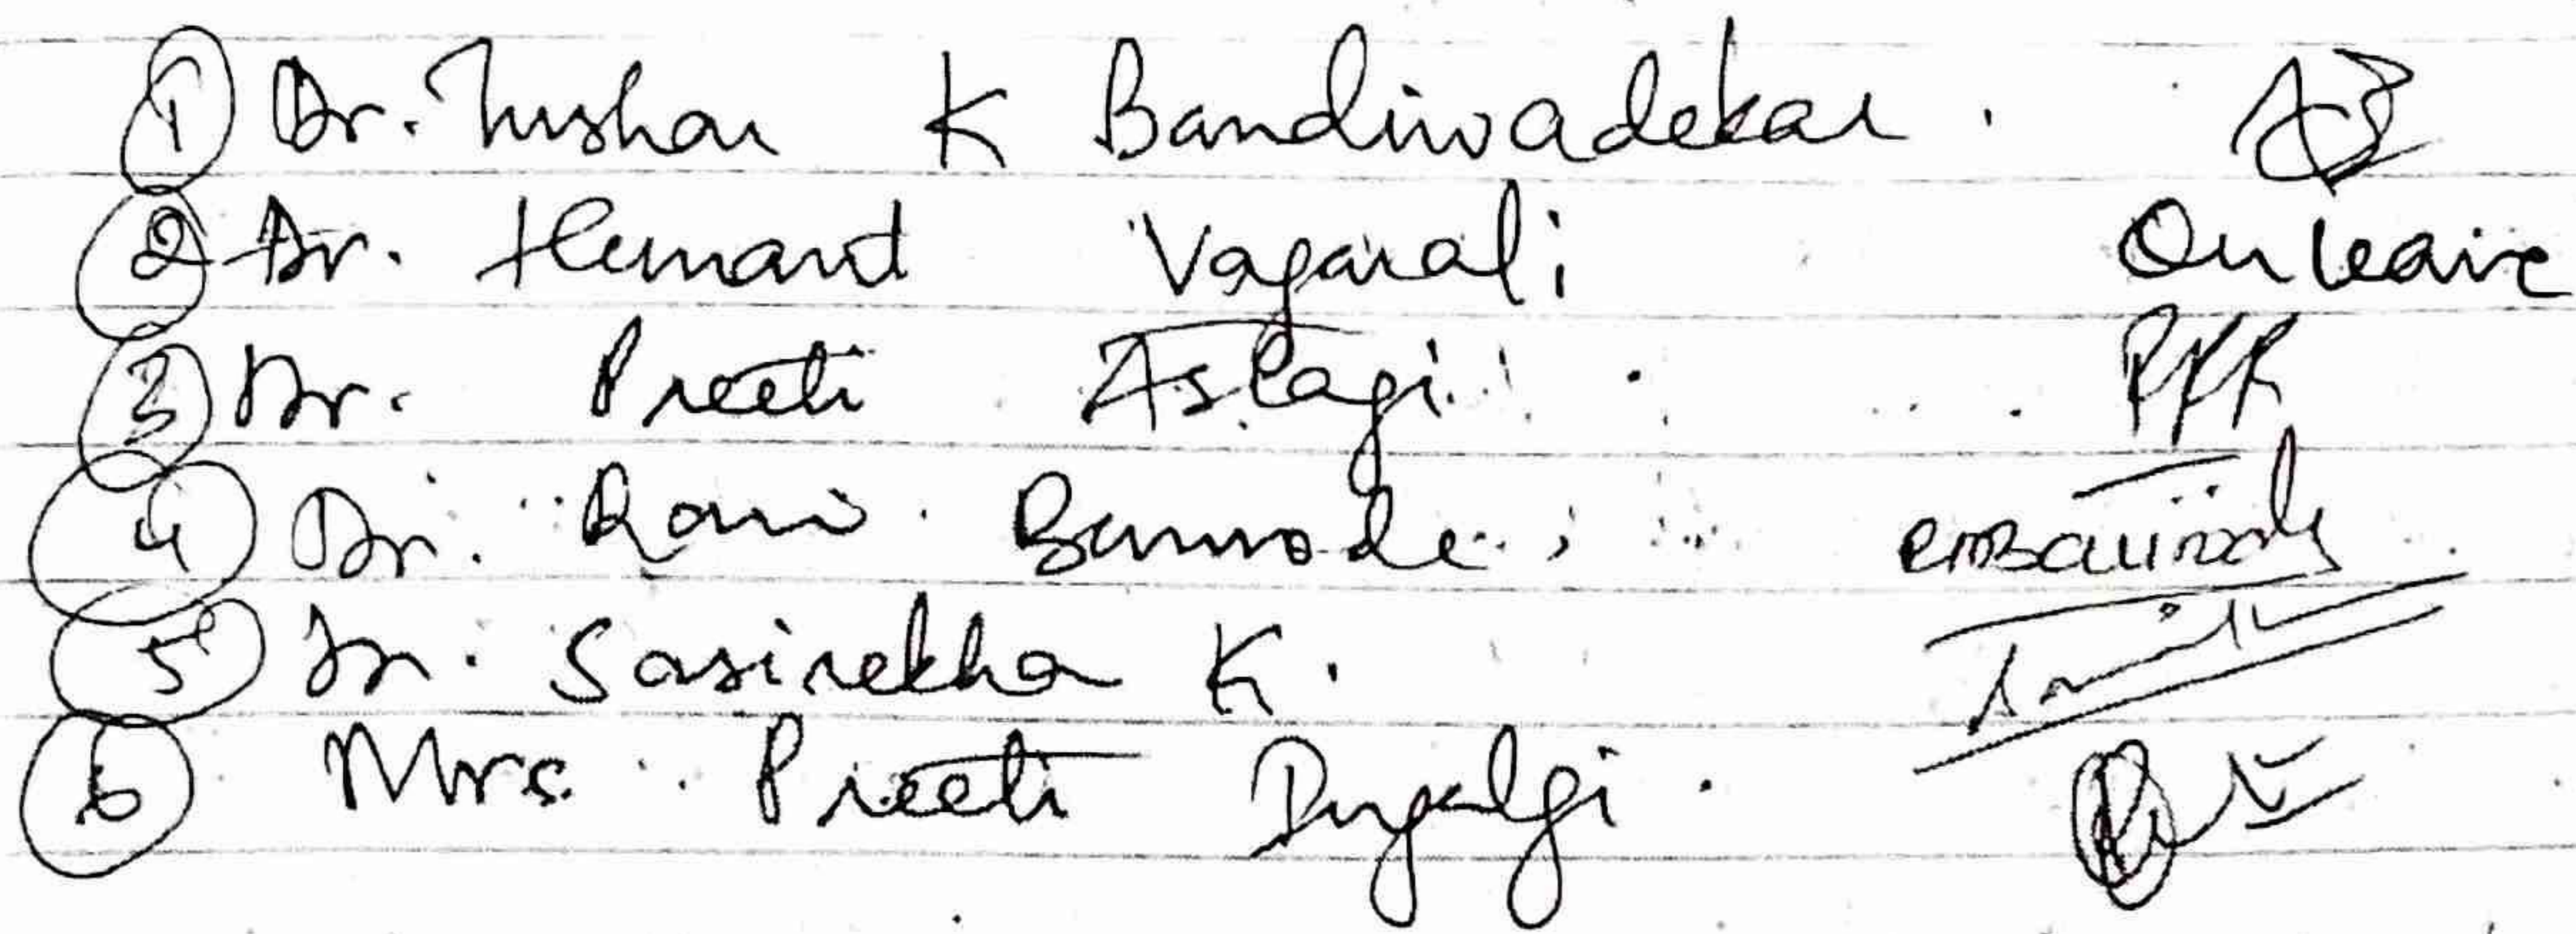 1 Dr. Tushar K Bandiwadekar.
2 Dr. Hemant Vagarali On leave
3 Dr. Preeti Astagi PPR
4 Dr. Rani
5 Dr. Sasirekha K.
6 Mrs. Preeti